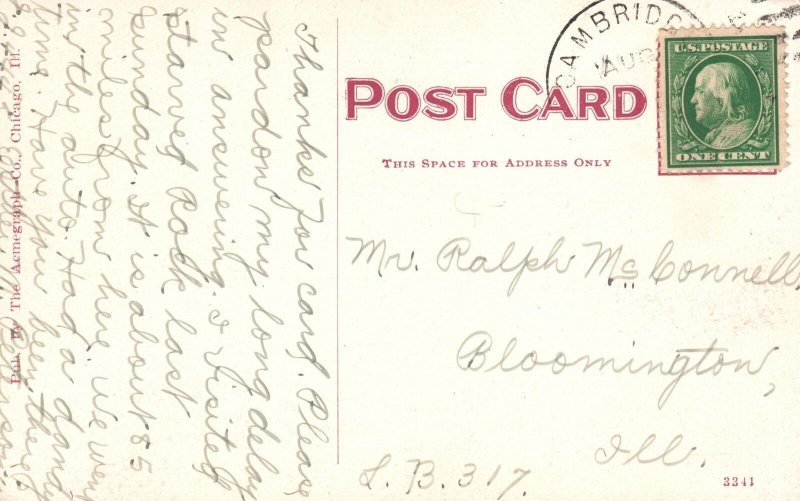 Thanks for card. Please
pardon my long delay
in answering. I visited
Starved Rock last
Sunday. It is about 85
miles from here. We went
in the auto. Had a dandy
time. Have you been there?
Pub. by The Acmegraph Co., Chicago, Ill.
CAMBRIDGE
AUG
U.S. POSTAGE
ONE CENT
POST CARD
THIS SPACE FOR ADDRESS ONLY
Mr. Ralph McConnell,
Bloomington,
Ill.
L. B. 317.
3341